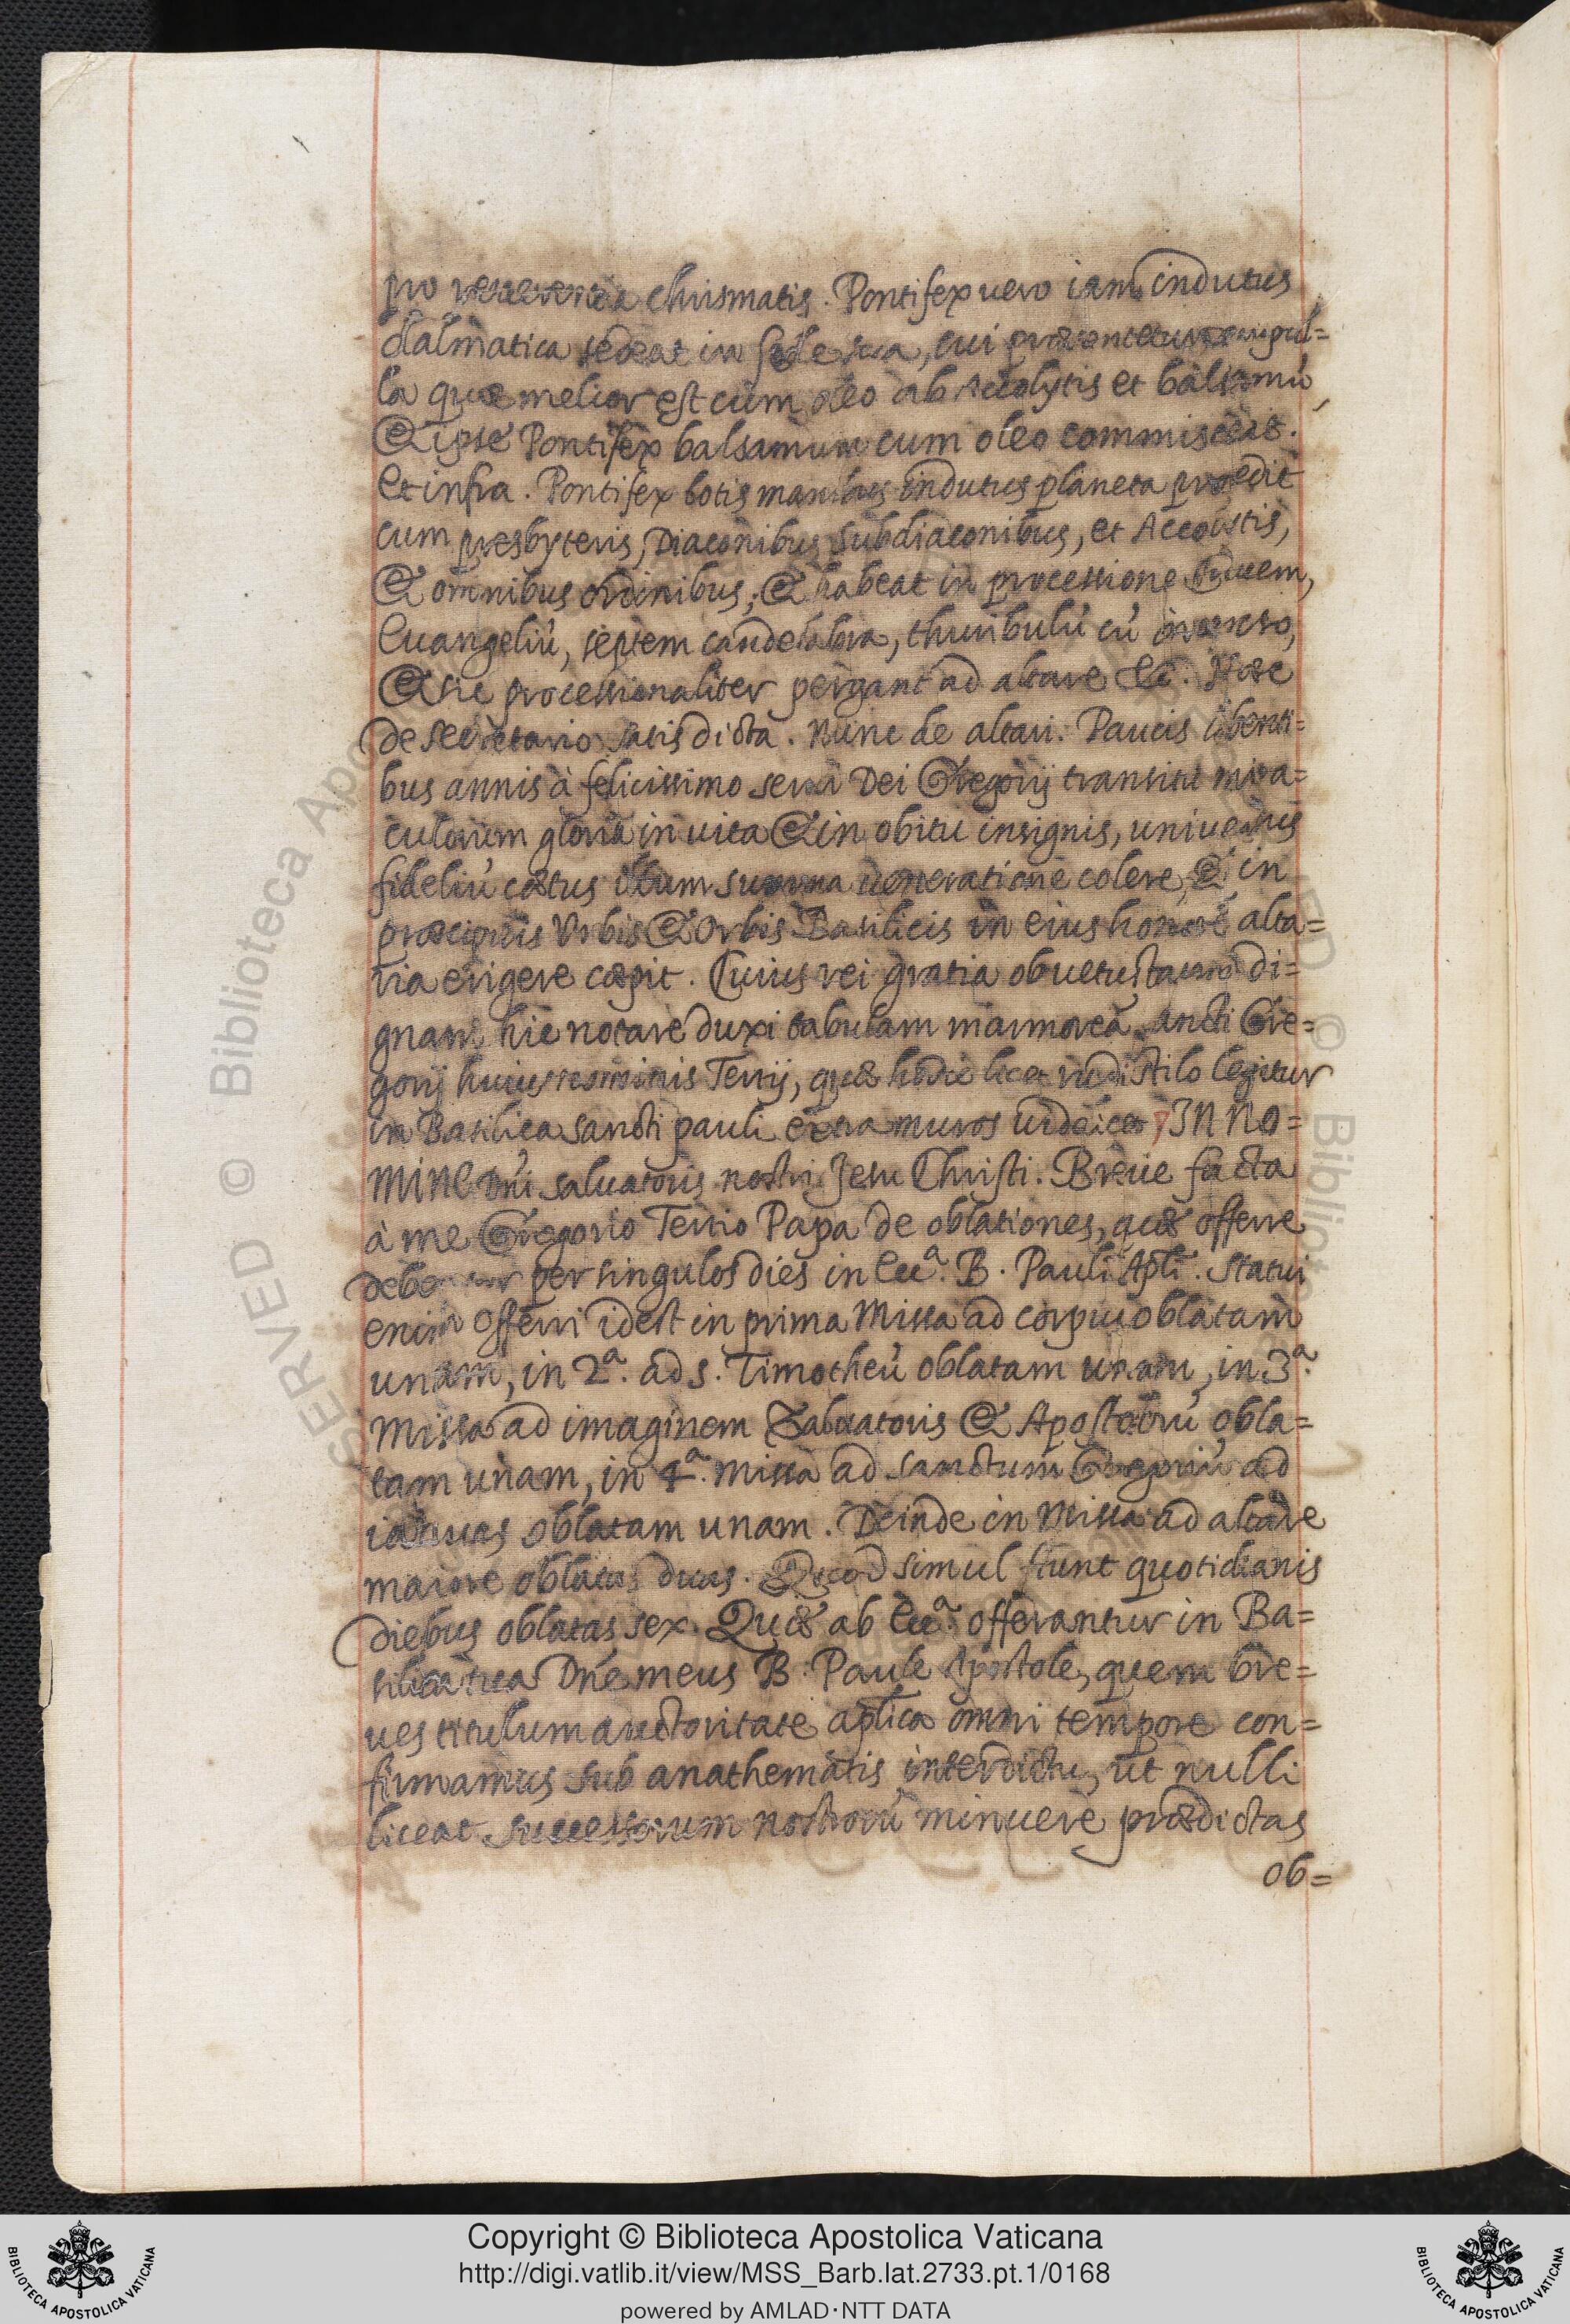 pro reuerentia chrismatis. Pontifex uero iam indutus
dalmatica sedeat in sede sua, cui præsentetur ampul=
la quæ melior est cum oleo ab Accolytis et balsamú,
& ipse Pontifex balsamum cum oleo commisceat.
Et infra. Pontifex lotis manibus indutus planeta procedit
cum presbyteris, Diaconibus, subdiaconibus, et Accolitis,
& omnibus ordinibus; & habeat in processione Crucem,
Euangeliú, septem candelabra, thuribulú cú incenso,
& sic processionaliter pergant ad altare &c. Hæc
de secretario satis dicta. Nunc de altari. Paucis labenti=
bus annis à felicissimo serui Dei Gregorij transitu mira=
culorum gloria in uita & in obitu insignis, uniuersus
fideliú cætus illum summa ueneratione colere, & in
præcipuis Vrbis & Orbis Basilicis in eius honore alta=
ria erigere cæpit. Cuius rei gratia ob uetustatem di=
gnam hic notare duxi tabulam marmoreá sancti Gre=
gorij huius nominis Tertij, quæ hodie licet rudi stilo legitur
in Basilica sancti Pauli extra muros uidelicet IN NO=
MINE Dñi saluatoris nostri Jesu Christi. Breue facta
à me Gregorio Tertio Papa de oblationes, quæ offerre
debentur per singulos dies in Ecc.ª B. Pauli Apli. Statui
enim offerri idest in prima Missa ad corpus oblatam
unam, in 2.ª ad s. Timotheú oblatam unam, in 3.ª
Missa ad imaginem Saluatoris & Apostolorú obla=
tam unam, in 4.ª missa ad sanctum Gregoriú ad
ianuas oblatam unam. Deinde in Missa ad altare
maiore oblatas duas. Quod simul fiunt quotidianis
diebus oblatas sex. Quæ ab Ecc.ª offerantur in Ba=
silica tua Dñe meus B. Paule Apostole, quem bre=
ues titulum auctoritate aplica omni tempore con=
firmamus sub anathematis interdictu, ut nulli
liceat successorum nostrorú minuere prædictas
ob=
Copyright © Biblioteca Apostolica Vaticana
http://digi.vatlib.it/view/MSS_Barb.lat.2733.pt.1/0168
powered by AMLAD·NTT DATA
BIBLIOTECA APOSTOLICA VATICANA
BIBLIOTECA APOSTOLICA VATICANA